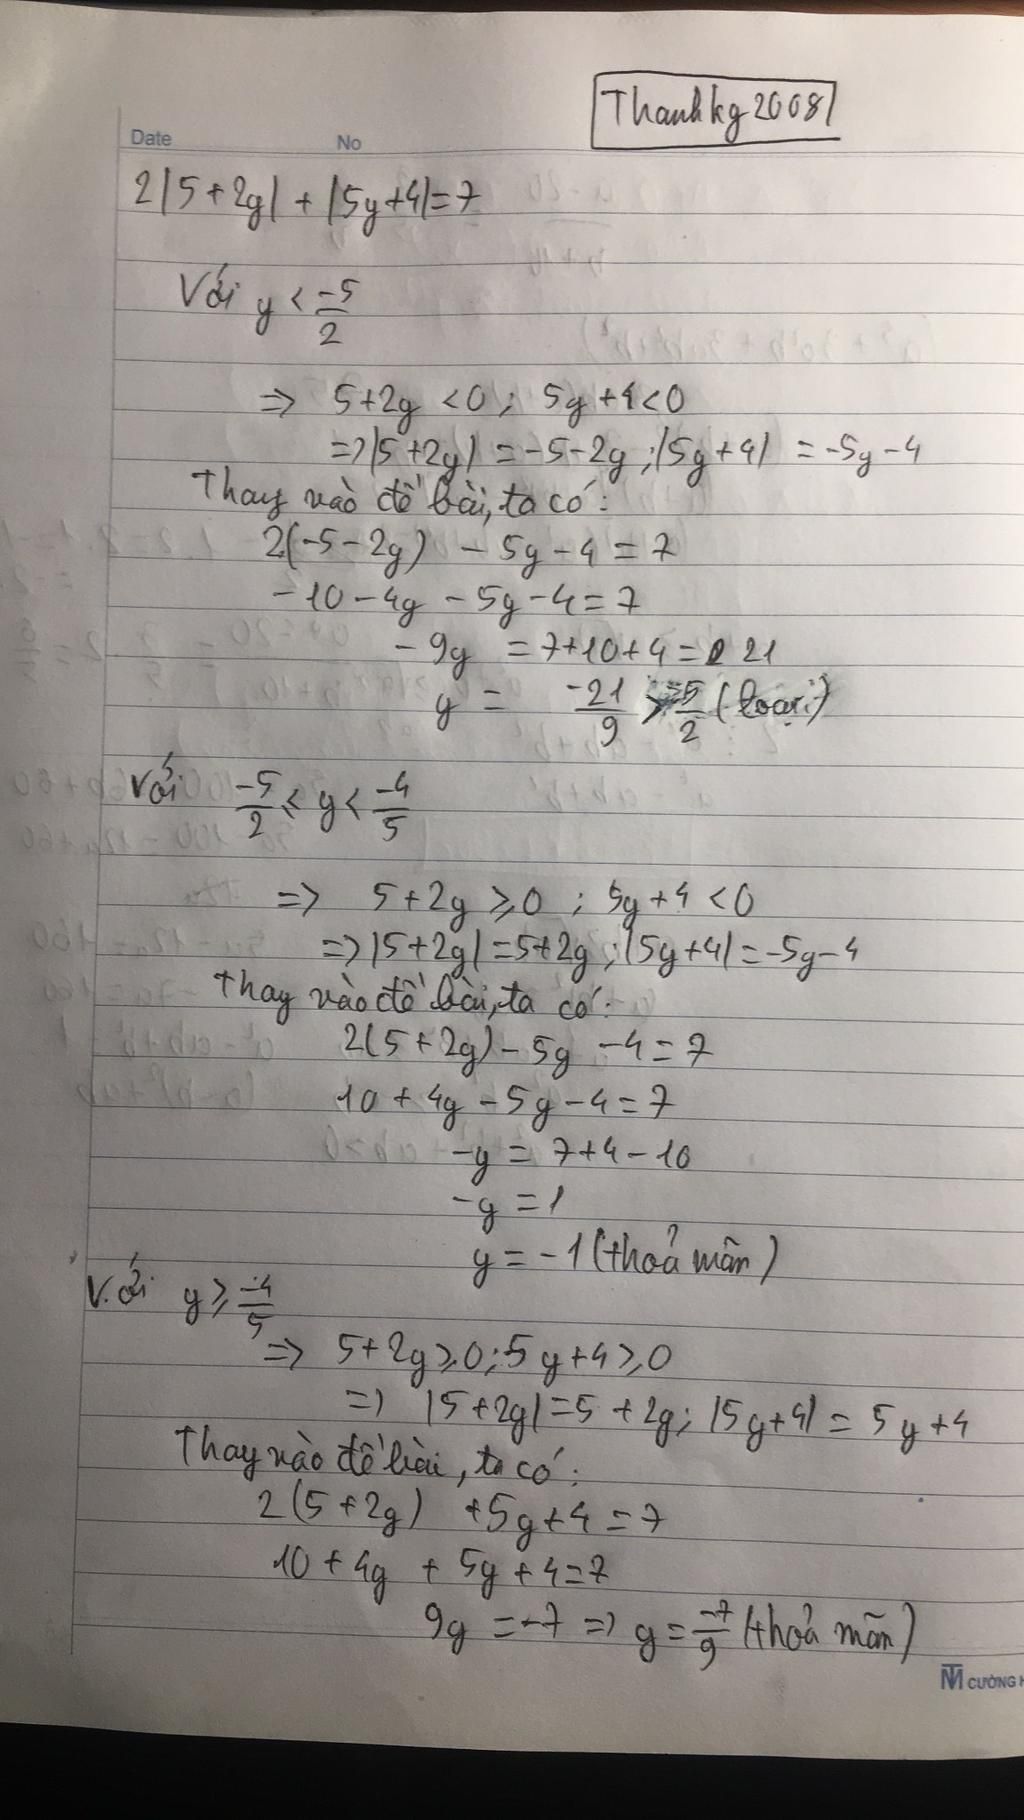 Thanhkg2008
Date No
2|5+2y| + |5y+4|=7
Với y < -5/2
=> 5+2y <0; 5y+4<0
=>|5+2y| = -5-2y ;|5y+4| = -5y-4
Thay vào đề bài, ta có:
2(-5-2y) - 5y-4=7
-10-4y -5y-4=7
-9y =7+10+4= 21
y = -21/9 > -5/2 (loại)
Với -5/2 ≤ y < -4/5
=> 5+2y ≥0 ; 5y+4 <0
=>|5+2y|=5+2y ;|5y+4|=-5y-4
Thay vào đề bài, ta có:
2(5+2y)-5y -4=7
10+4y-5y-4=7
-y = 7+4-10
-y =1
y=-1 (thoả mãn)
Với y ≥ -4/5
=> 5+2y≥0;5y+4≥0
=> |5+2y|=5+2y; |5y+4| = 5y+4
Thay vào đề bài, ta có:
2(5+2y) +5y+4=7
10+4y + 5y+4=7
9y =-7 => y= -7/9 (thoả mãn)
CƯỜNG